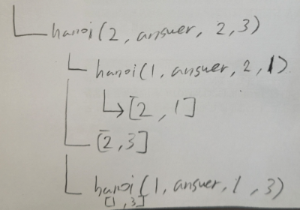 hanoi(2, answer, 2,3)
hanoi(1, answer, 2, 1)
[2, 1]
[2,3]
hanoi(1, answer, 1, 3)
[1, 3]